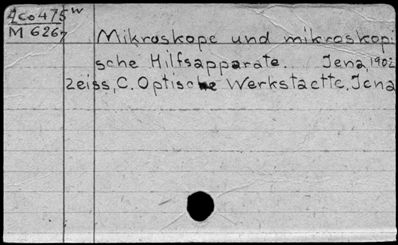 4Co475w
M 6267
Mikroskope und mikroskopi
sche Hilfsapparate. Jena, 1902
Zeiss, C. Optische Werkstaette, Jena